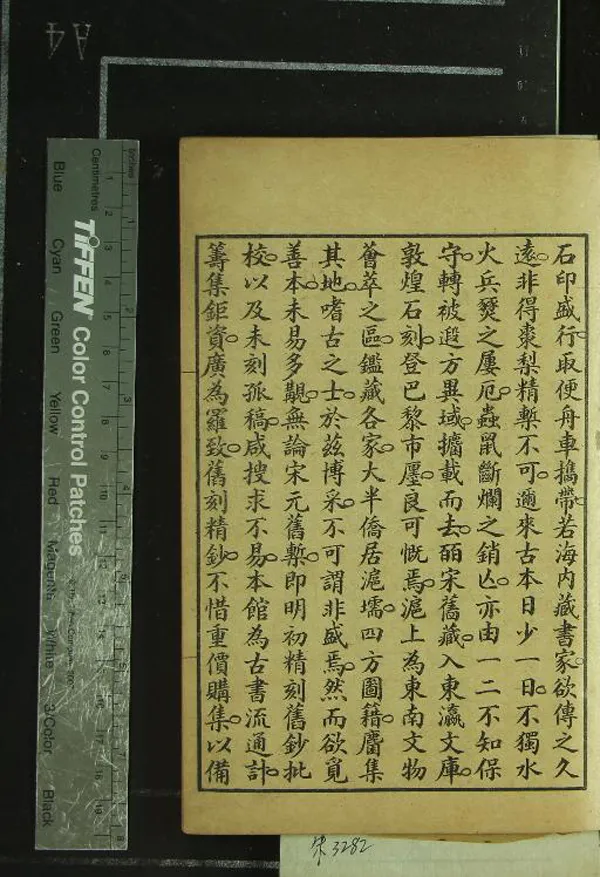 石印盛行。取便舟車攜帶。若海内藏書家。欲傳之久
遠。非得棗梨精槧不可。邇來古本日少一日。不獨水
火兵燹之屢厄。蟲鼠斷爛之銷亾。亦由一二不知保
守。轉被遐方異域。攟載而去。皕宋舊藏。入東瀛文庫。
敦煌石刻。登巴黎市廛。良可慨焉。滬上為東南文物
薈萃之區。鑑藏各家。大半僑居滬壖。四方圖籍。麕集
其地。嗜古之士。於茲博采。不可謂非盛焉。然而欲覓
善本。未易多覯。無論宋元舊槧。即明初精刻舊鈔批
校。以及未刻孤稿。咸搜求不易。本館為古書流通計。
籌集鉅資。廣為羅致。舊刻精鈔。不惜重價購集。以備
A4
Inches
Centimetres
TIFFEN Color Control Patches
Blue
Cyan
Green
Yellow
Red
Magenta
White
3/Color
Black
朱3282